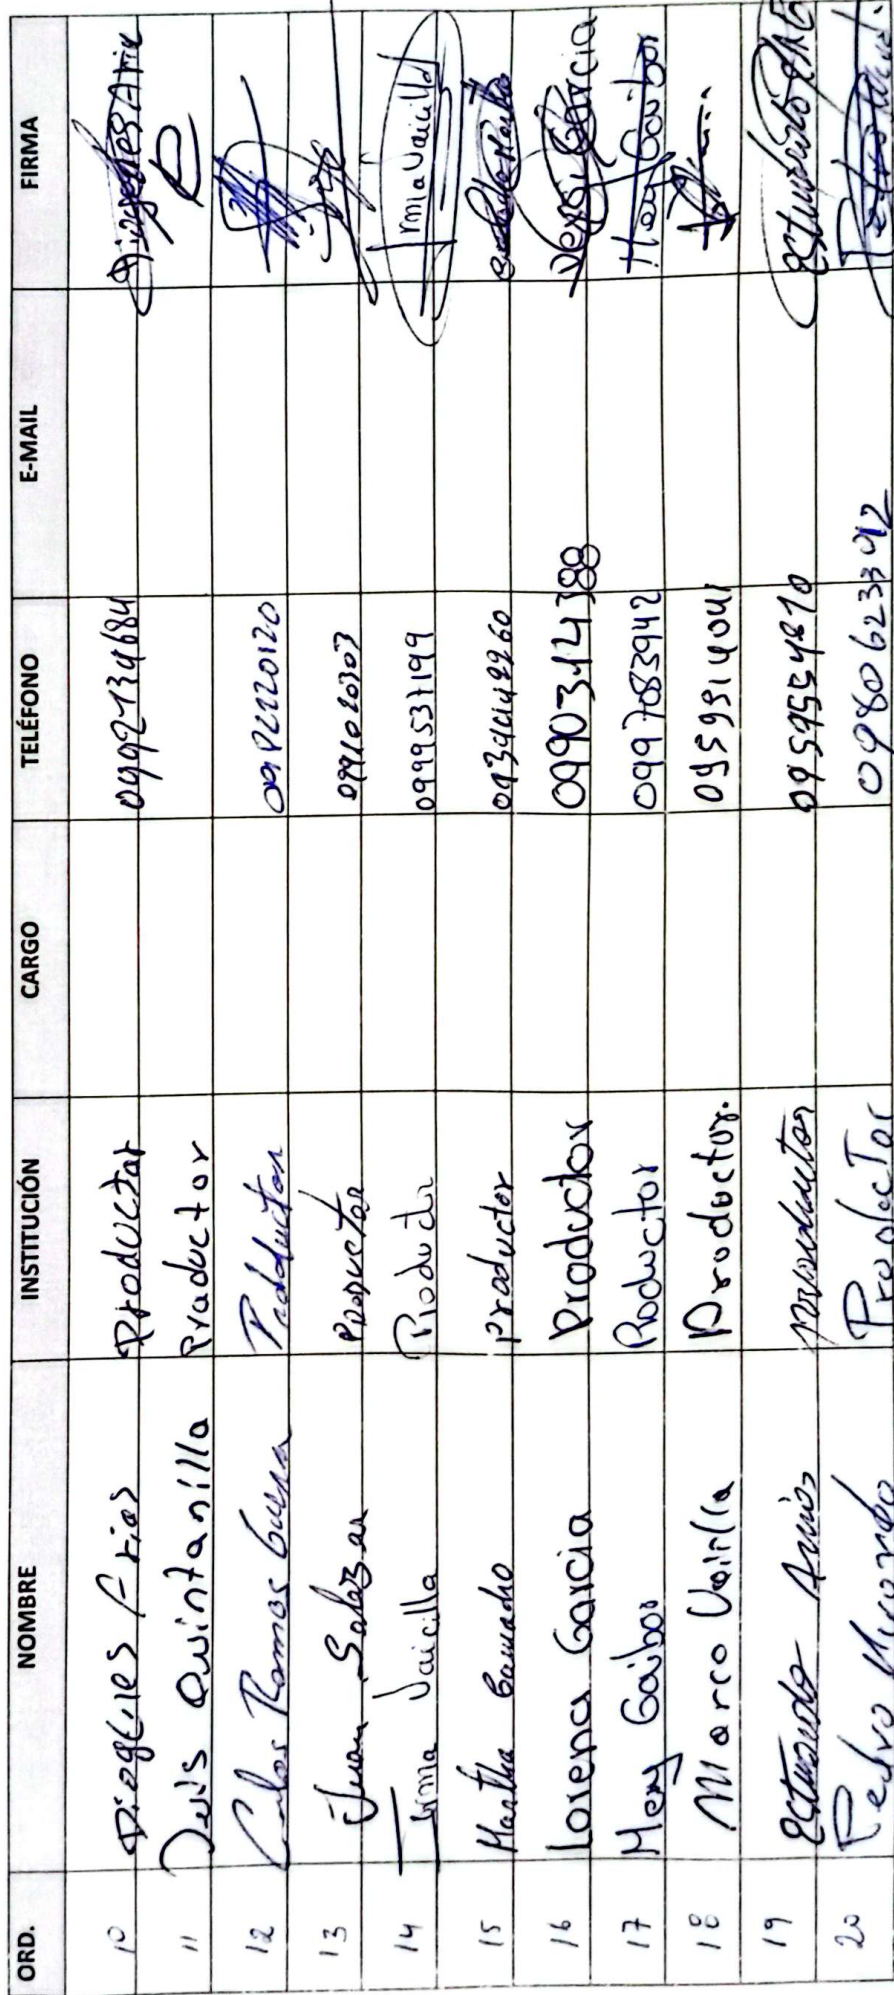 ORD. NOMBRE INSTITUCIÓN CARGO TELÉFONO E-MAIL FIRMA
10 Diogenes Arias Productor 0992134684
11 Luis Quintanilla Productor
12 Carlos Ramos Guerra Productor
13 Juan Salazar Productor 0991020303
14 Irma Vaicilla Productor 0999537199 Irma Vaicilla
15 Martha Camacho productor
16 Lorena Garcia Productor 0990314388 Garcia
17 Mery Gaibor Productor 0997083942 Mery Gaibor
18 Marco Vaicilla Productor. 0959914041
19 Estuardo Arias productor 0959554870
20 Pedro Productor 0980623392